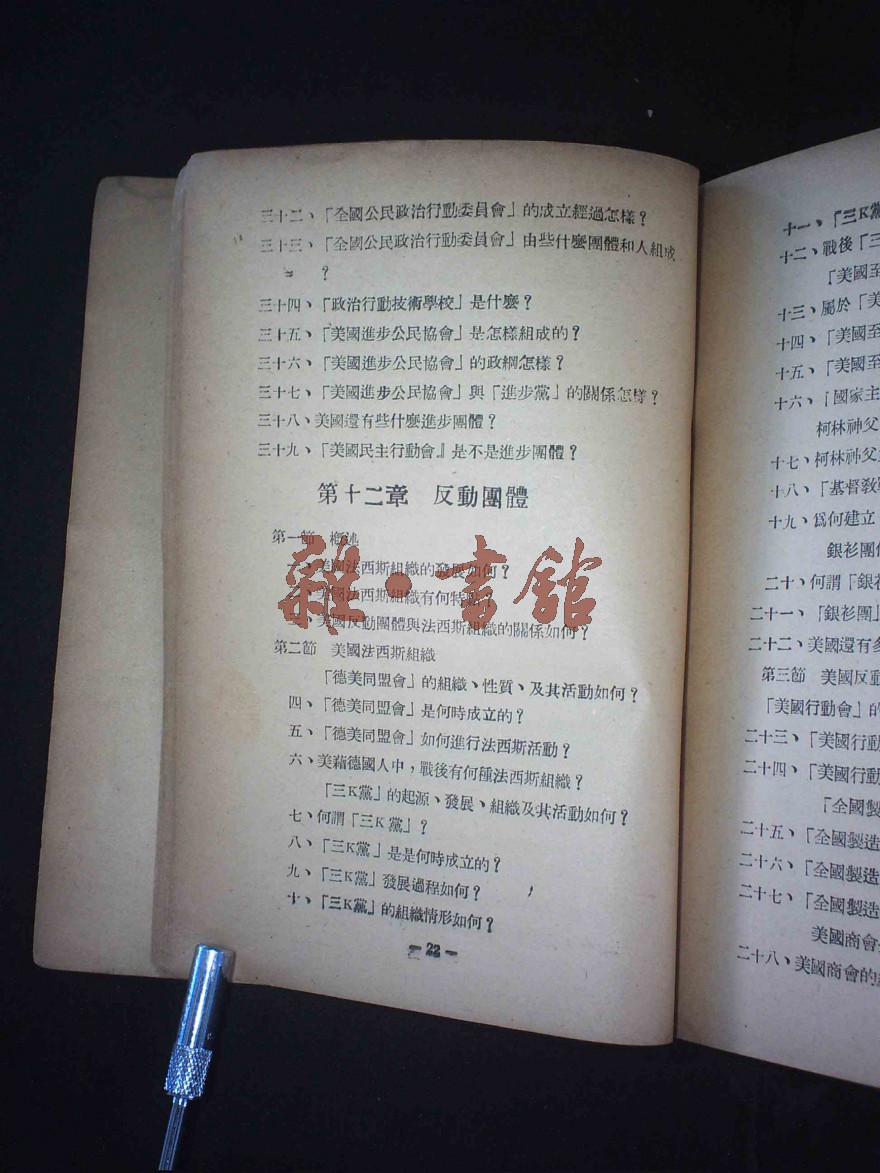 三十二、「全國公民政治行動委員會」的成立經過怎樣？
三十三、「全國公民政治行動委員會」由些什麼團體和人組成
？
三十四、「政治行動技術學校」是什麼？
三十五、「美國進步公民協會」是怎樣組成的？
三十六、「美國進步公民協會」的政綱怎樣？
三十七、「美國進步公民協會」與「進步黨」的關係怎樣？
三十八、美國還有些什麼進步團體？
三十九、「美國民主行動會』是不是進步團體？
第十二章　反動團體
第一節　概述
一、美國法西斯組織的發展如何？
二、美國法西斯組織有何特點？
三、美國反動團體與法西斯組織的關係如何？
第二節　美國法西斯組織
「德美同盟會」的組織、性質、及其活動如何？
四、「德美同盟會」是何時成立的？
五、「德美同盟會」如何進行法西斯活動？
六、美藉德國人中，戰後有何種法西斯組織？
「三K黨」的起源、發展、組織及其活動如何？
七、何謂「三K黨」？
八、「三K黨」是是何時成立的？
九、「三K黨」發展過程如何？
十、「三K黨」的組織情形如何？
— 22 —
雜·書館
十一、「三K黨
十二、戰後「三
「美國至
十三、屬於「美
十四、「美國至
十五、「美國至
十六、「國家主
柯林神父
十七、柯林神父
十八、「基督教
十九、爲何建立
銀衫團
二十、何謂「銀衫
二十一、「銀衫團」
二十二、美國還有多
第三節　美國反動
「美國行動會」的
二十三、「美國行動
二十四、「美國行動
「全國製
二十五、「全國製造
二十六、「全國製造
二十七、「全國製造
美國商會
二十八、美國商會的